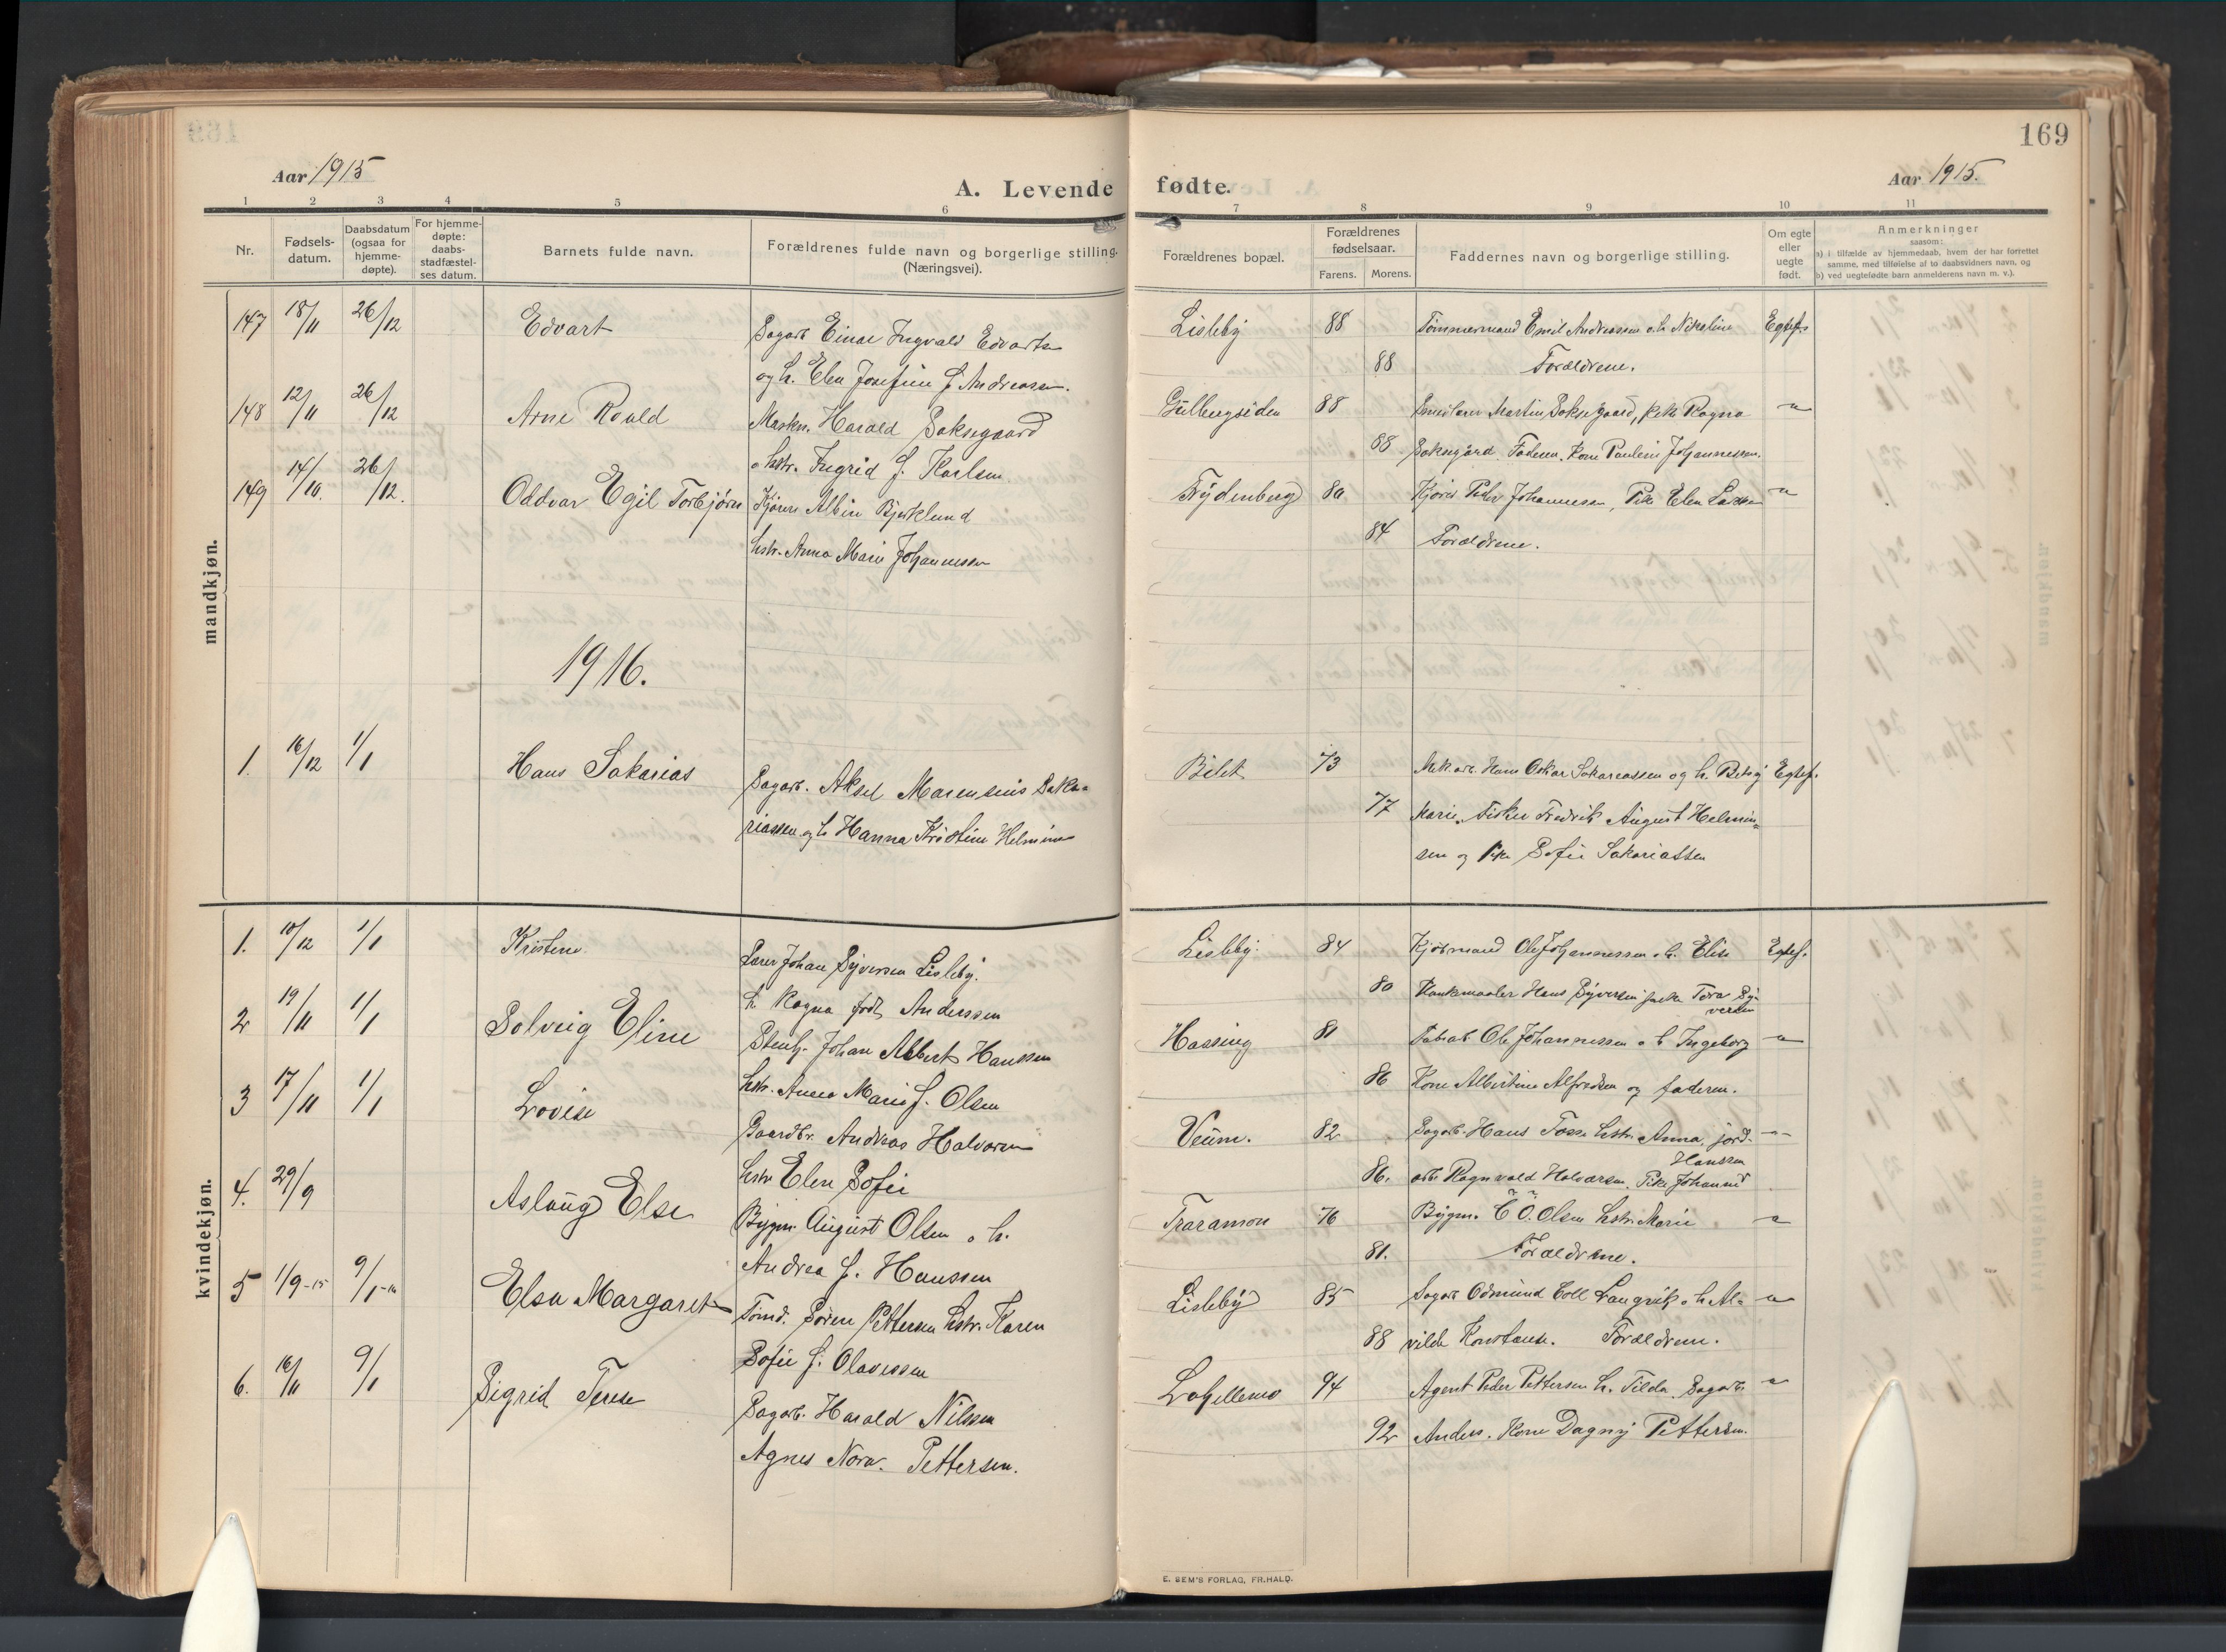 169
Aar 1915
A. Levende fødte.
Aar 1915.
1 2 3 4 5 6 7 8 9 10 11
Nr.
Fødsels-
datum.
Daabsdatum
(ogsaa for
hjemme-
døpte).
For hjemme-
døpte:
daabs-
stadfæstel-
ses datum.
Barnets fulde navn.
Forældrenes fulde navn og borgerlige stilling.
(Næringsvei).
Forældrenes bopæl.
Forældrenes
fødselsaar.
Farens. Morens.
Faddernes navn og borgerlige stilling.
Om egte
eller
uegte
født.
Anmerkninger
saasom:
a) i tilfælde av hjemmedaab, hvem der har forrettet
samme, med tilføielse af to daabsvidners navn, og
b) ved uegtefødte barn anmelderens navn m. v.).
mandkjøn.
147 18/11 26/12 Edvart
Sagarb. Einar Ingvald Edvarts
og h. Elen Josefine f. Andreasen.
Lisleby 88
88
Tømmermand Emil Andreassen o. h. Nikoline Egtef.
Forældrene.
148 12/11 26/12 Arne Roald
Maskn. Harald Saksegaard
o hstr. Ingrid f. Karlsen.
Gulbergsiden 88
88
Martin Saksegaard, pike Ragna
Saksegård. Faderen. Kone Pauline Johannessen.
149 14/10. 26/12. Oddvar Egil Torbjørn
Kjører Albin Bjerklund
hstr. Anna Marie Johannessen
Frydenberg 80
84
Kjører Peder Johannessen, Pike Elen Larsen
Forældrene.
1916.
1. 16/12 1/1 Hans Sakarias
Sagarb. Aksel Marensius Saka-
riassen og h Hanna Kristine Helmine
73
77
Mek. arb. Hans Oskar Sakareassen og h. Betsy Egtef.
Marie. Fisker Fredrik August Helmin-
sen og Pike Sofie Sakariassen
kvindekjøn.
1. 10/12 1/1 Kristine
Lærer Johan Syversen Lisleby.
h. Ragna født Anderssen
Lisleby 84
80
Kjøbmand Ole Johannessen o. h. Elise Egtef.
Hans Syversen pike Tora Sy-
versen
2 19/11 1/1 Solveig Eline
Stenh. Johan Albert Hanssen
hstr. Anna Marie f. Olsen
Hassing 81
86
Fabrab. Ole Johannessen o h Ingeborg
Kone Albertine Alfredsen og faderen.
3 17/11 1/1 Lovise
Gaardbr. Andreas Halvorsen
hstr Elen Sofie
Veum. 82
86.
Sagarb. Hans Foss hstr. Anna. jord-
Hanssen
arb. Ragnvald Halvorsen. Pike Johanne
4. 29/9 Aslaug Else
Bygm. August Olsen o h.
Andrea f. Hanssen
Traramon 76
81.
Bygm. C O. Olsen hstr. Marie
Forældrene.
5 1/9-15 9/1-16 Elsa Margaret
Tømd. Søren Pettersen hstr. Karen
Sofie f. Olavessen
Lisleby 85
88
Sagarb Odmund Coll Langvik o h Al-
vilde Konstanse. Forældrene.
6. 16/11 9/1 Sigrid Terese
Sagarb. Harald Nilssen
Agnes Nora. Pettersen.
94
92
Agent Peder Pettersen h. Tilda. Sagarb.
Anders. Kone Dagny Pettersen.
E. SEM'S FORLAG, FR.HALD.